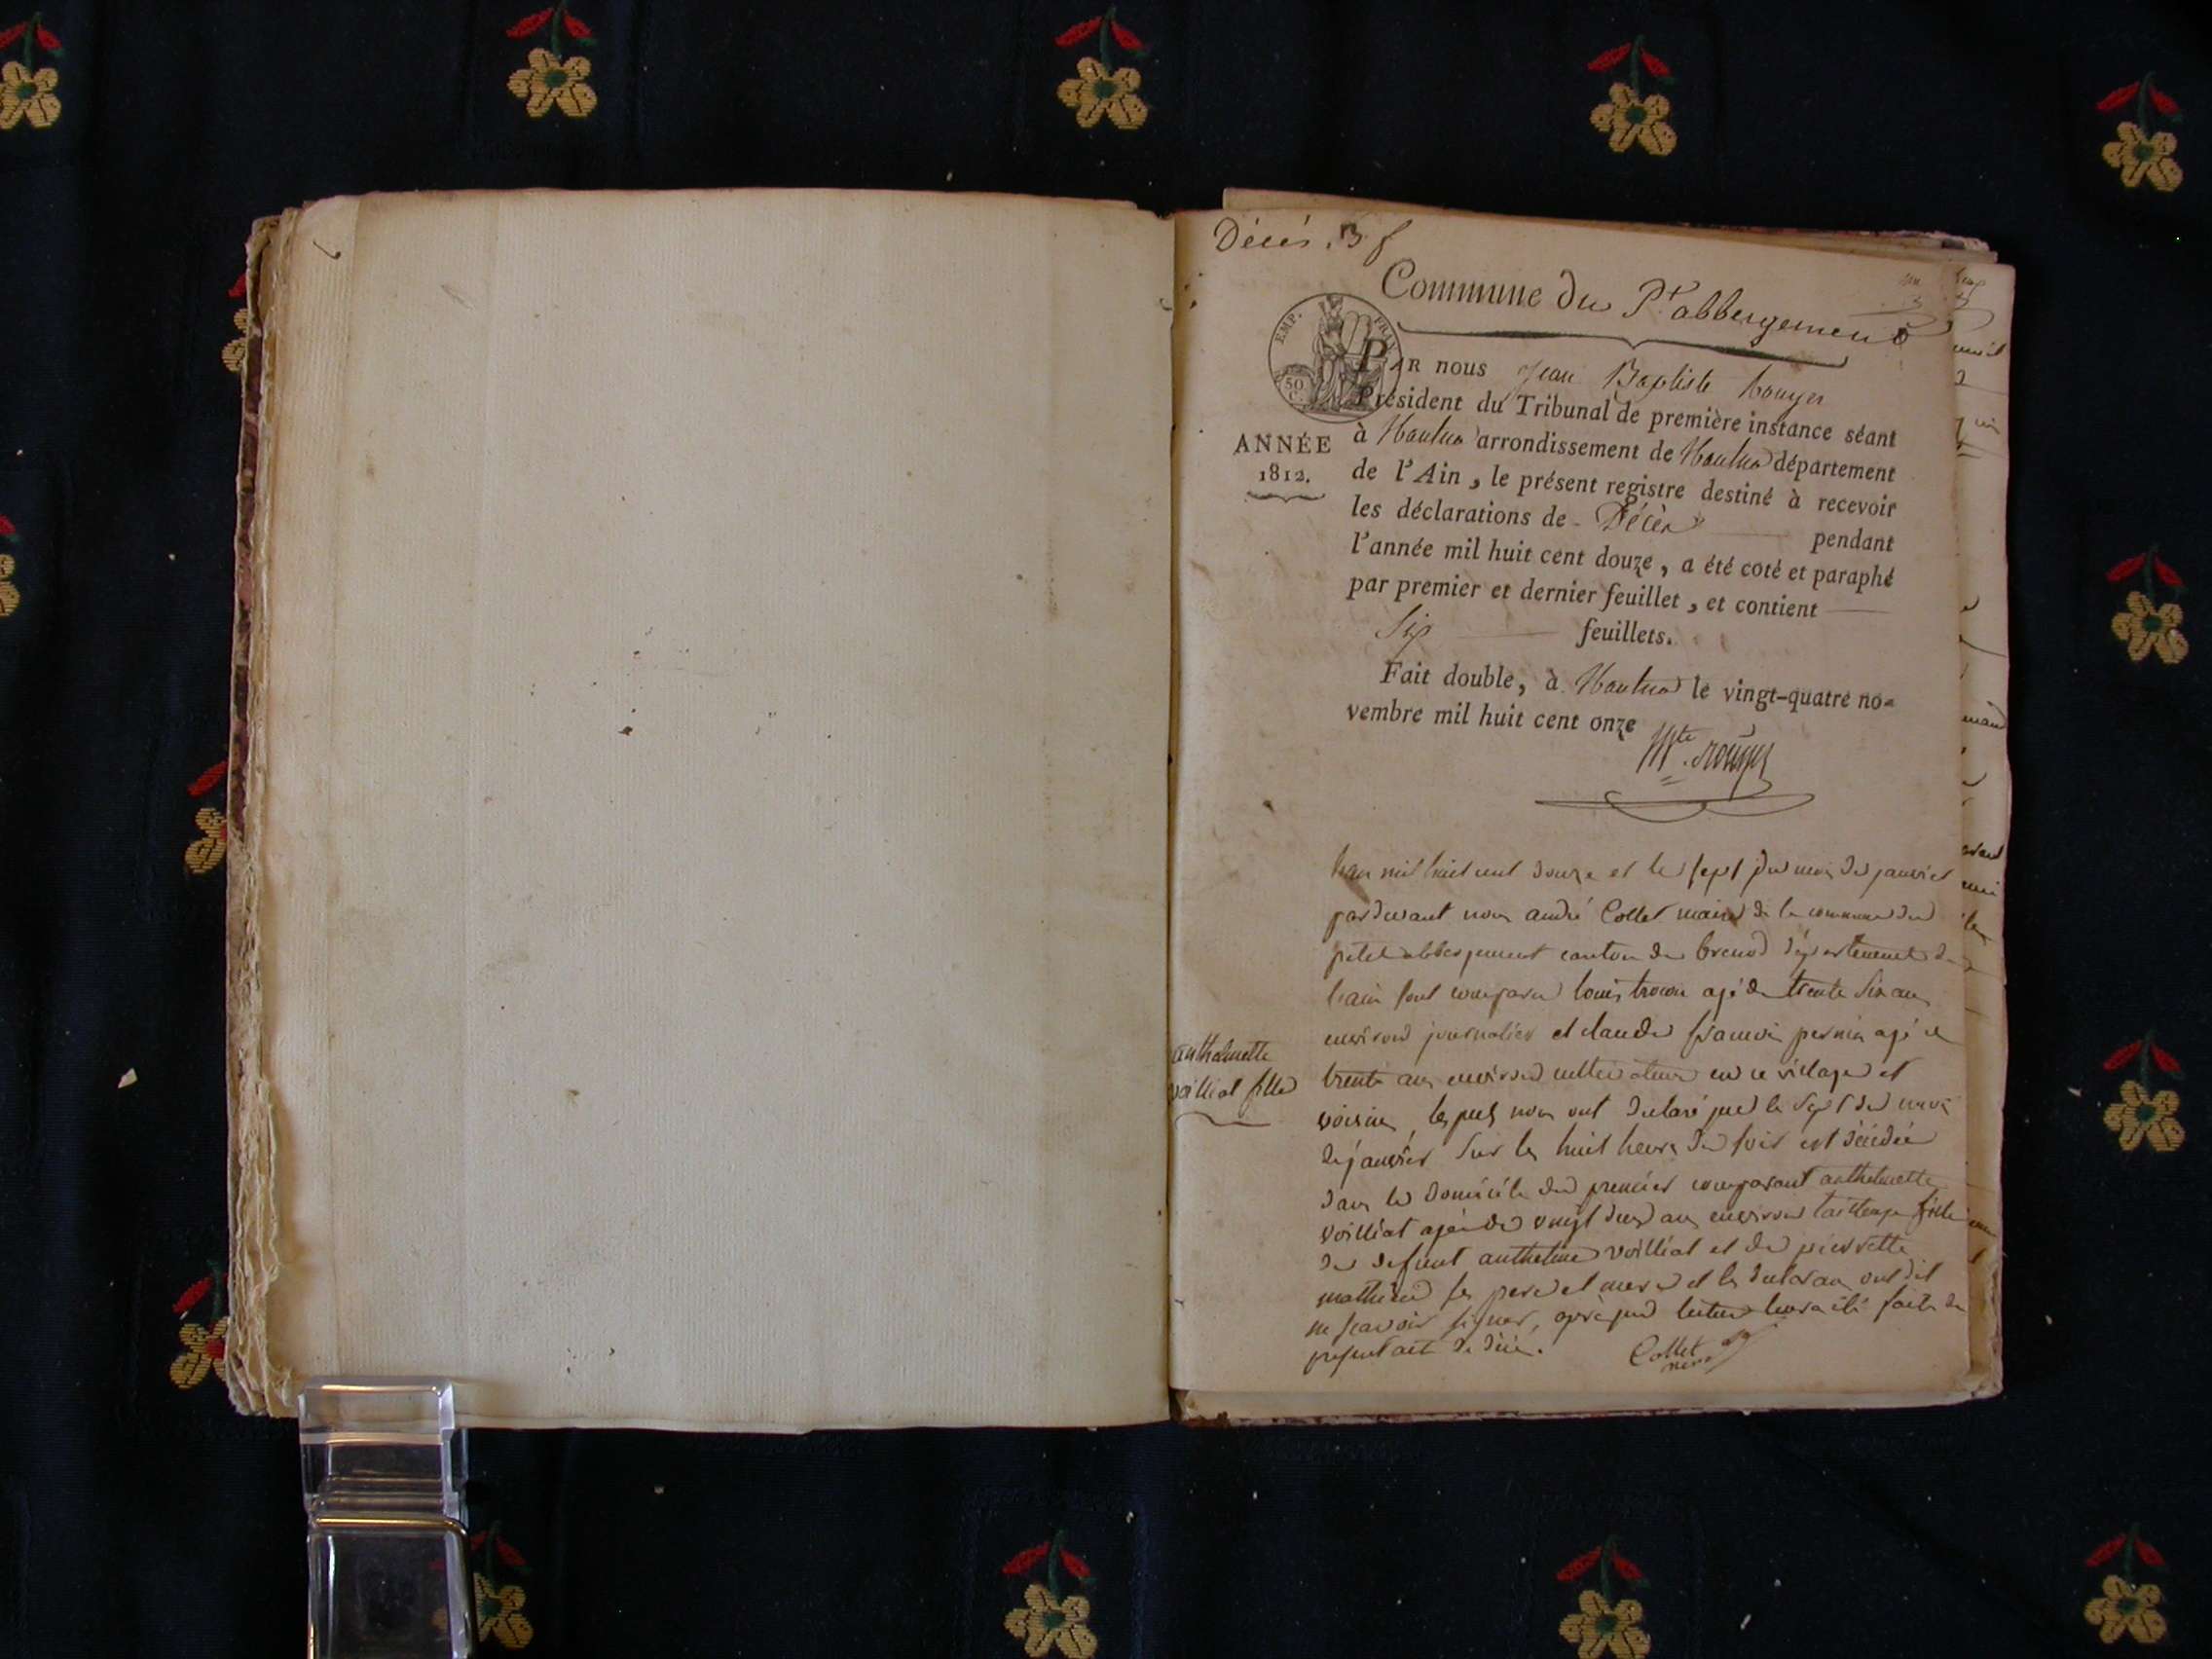 Décès
Commune du Pt abbergement
EMP. FRAN
50
C
PAR nous Jean Baptiste Rouyer
Président du Tribunal de première instance séant
à Nantua arrondissement de Nantua département
ANNÉE
1812.
de l'Ain, le présent registre destiné à recevoir
les déclarations de Décès pendant
l'année mil huit cent douze, a été coté et paraphé
par premier et dernier feuillet, et contient
Six feuillets.
Fait double, à Nantua le vingt-quatre no=
vembre mil huit cent onze
Rouyer
Lan mil huit cent douze et le sept du mois de janvier
pardevant nous andré Collet maire de la commune du
petit abbergement canton de brenod département de
lain sont comparu louis age de trente six ans
environ journalier et claude françois pernin agé de
anthelmette
voilliat fille
trente ans environ cultivateur en ce village et
voisins, lesquels nous ont declaré que le sept du mois
de janvier sur les huit heures du soir est décédée
dans le domicile du premier comparant anthelmette
voilliat agée de vingt deux ans environ fille
de defunt anthelme voilliat et de pierrette
mathieu ses pere et mere et les declarans ont dit
ne scavoir signer, après que lecture leur a été faite du
present acte de décès.
Collet